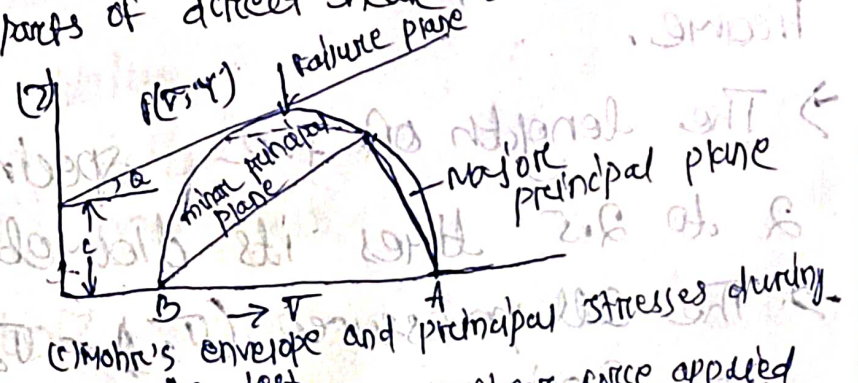 parts of direct
Failure plane
(τ)
f(σ, τ)
minor principal
plane
Major
principal plane
c
B → σ A
(c) Mohr's envelope and principal stresses during
test
force applied